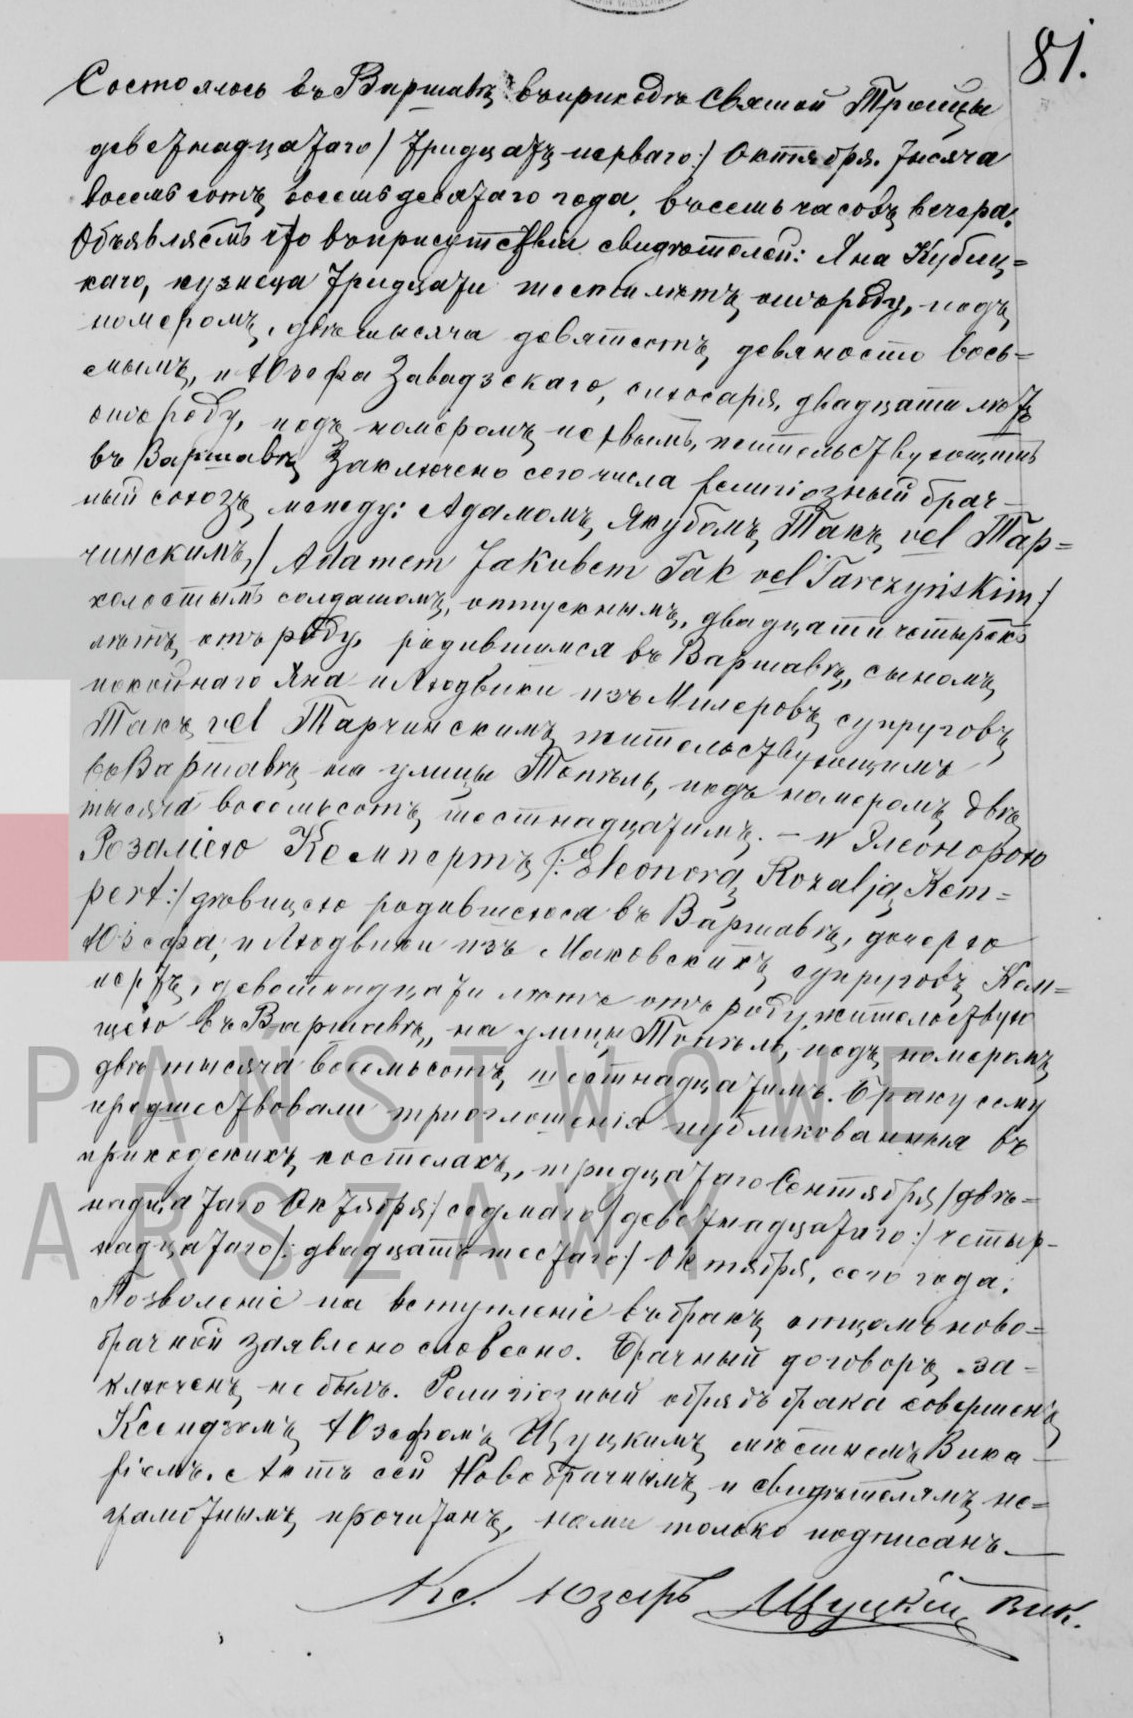 81.
Состоялось въ Варшавѣ въ приходѣ Святой Троицы
девятнадцатаго /тридцать перваго:/ Октября, тысяча
восемьсотъ восемьдесятаго года, въ семь часовъ вечера.
Объявляемъ что въ присутствіи свидѣтелей: Яна Кубиц=
каго, кузнеца тридцати шести лѣтъ отъ роду, подъ
номеромъ, двѣ тысяча девятьсотъ девяносто вось=
мымъ, и Юзефа Завадзскаго, слюсаря, двадцати лѣтъ
отъ роду, подъ номеромъ первымъ, жительствующихъ
въ Варшавѣ, Заключено сего числа религіозный брач-
ный союзъ, между: Адамомъ, Якубомъ, Такъ vel Тар=
чинскимъ,/ Adamem Jakubem Tak vel Tarczyńskim:/
холостымъ солдатомъ, отпускнымъ, двадцати четырехъ
лѣтъ отъ роду, родившимся въ Варшавѣ, сыномъ,
покойнаго Яна и Людвики изъ Милеровъ, супруговъ,
Такъ vel Тарчинскимъ, жительствующимъ
въ Варшавѣ на улицы Топѣль, подъ номеромъ двѣ
тысяча восемьсотъ шестнадцатимъ. — и Элеонорою
Розаліею Кемпертъ /: Eleonorą Rozalją Kem=
pert:/ дѣвицею родившеюся въ Варшавѣ, дочерью
Юзефа, и Людвики изъ Маковскихъ супруговъ Кем=
пертъ, девятнадцати лѣтъ отъ роду, жительствую
щею въ Варшавѣ, на улицы Топѣль, подъ номеромъ
двѣ тысяча восемьсотъ, шестнадцатимъ. Браку сему
предшествовали три оглошенія публикованныя въ
приходскихъ костелахъ, тридцатаго Сентября /двѣ=
надцатаго Октября:/ седмаго /девятнадцатаго:/ четыр-
надцатаго /: двадцать шестаго:/ Октября, сего года.
Позволеніе на вступленіе въ бракъ отцомъ ново=
брачной заявлено словесно. Брачный договоръ за=
ключенъ не былъ. Религіозный обрядъ брака совершенъ
Ксендзомъ Юзефомъ Щуцкимъ мѣстнемъ Вика-
ріемъ. Актъ сей Новобрачнымъ и свидѣтелямъ не=
грамотнымъ прочитанъ, нами только подписанъ.—
Кс. Юзефъ Щуцкій Вик.
PAŃSTWOWE
ARSZAWY